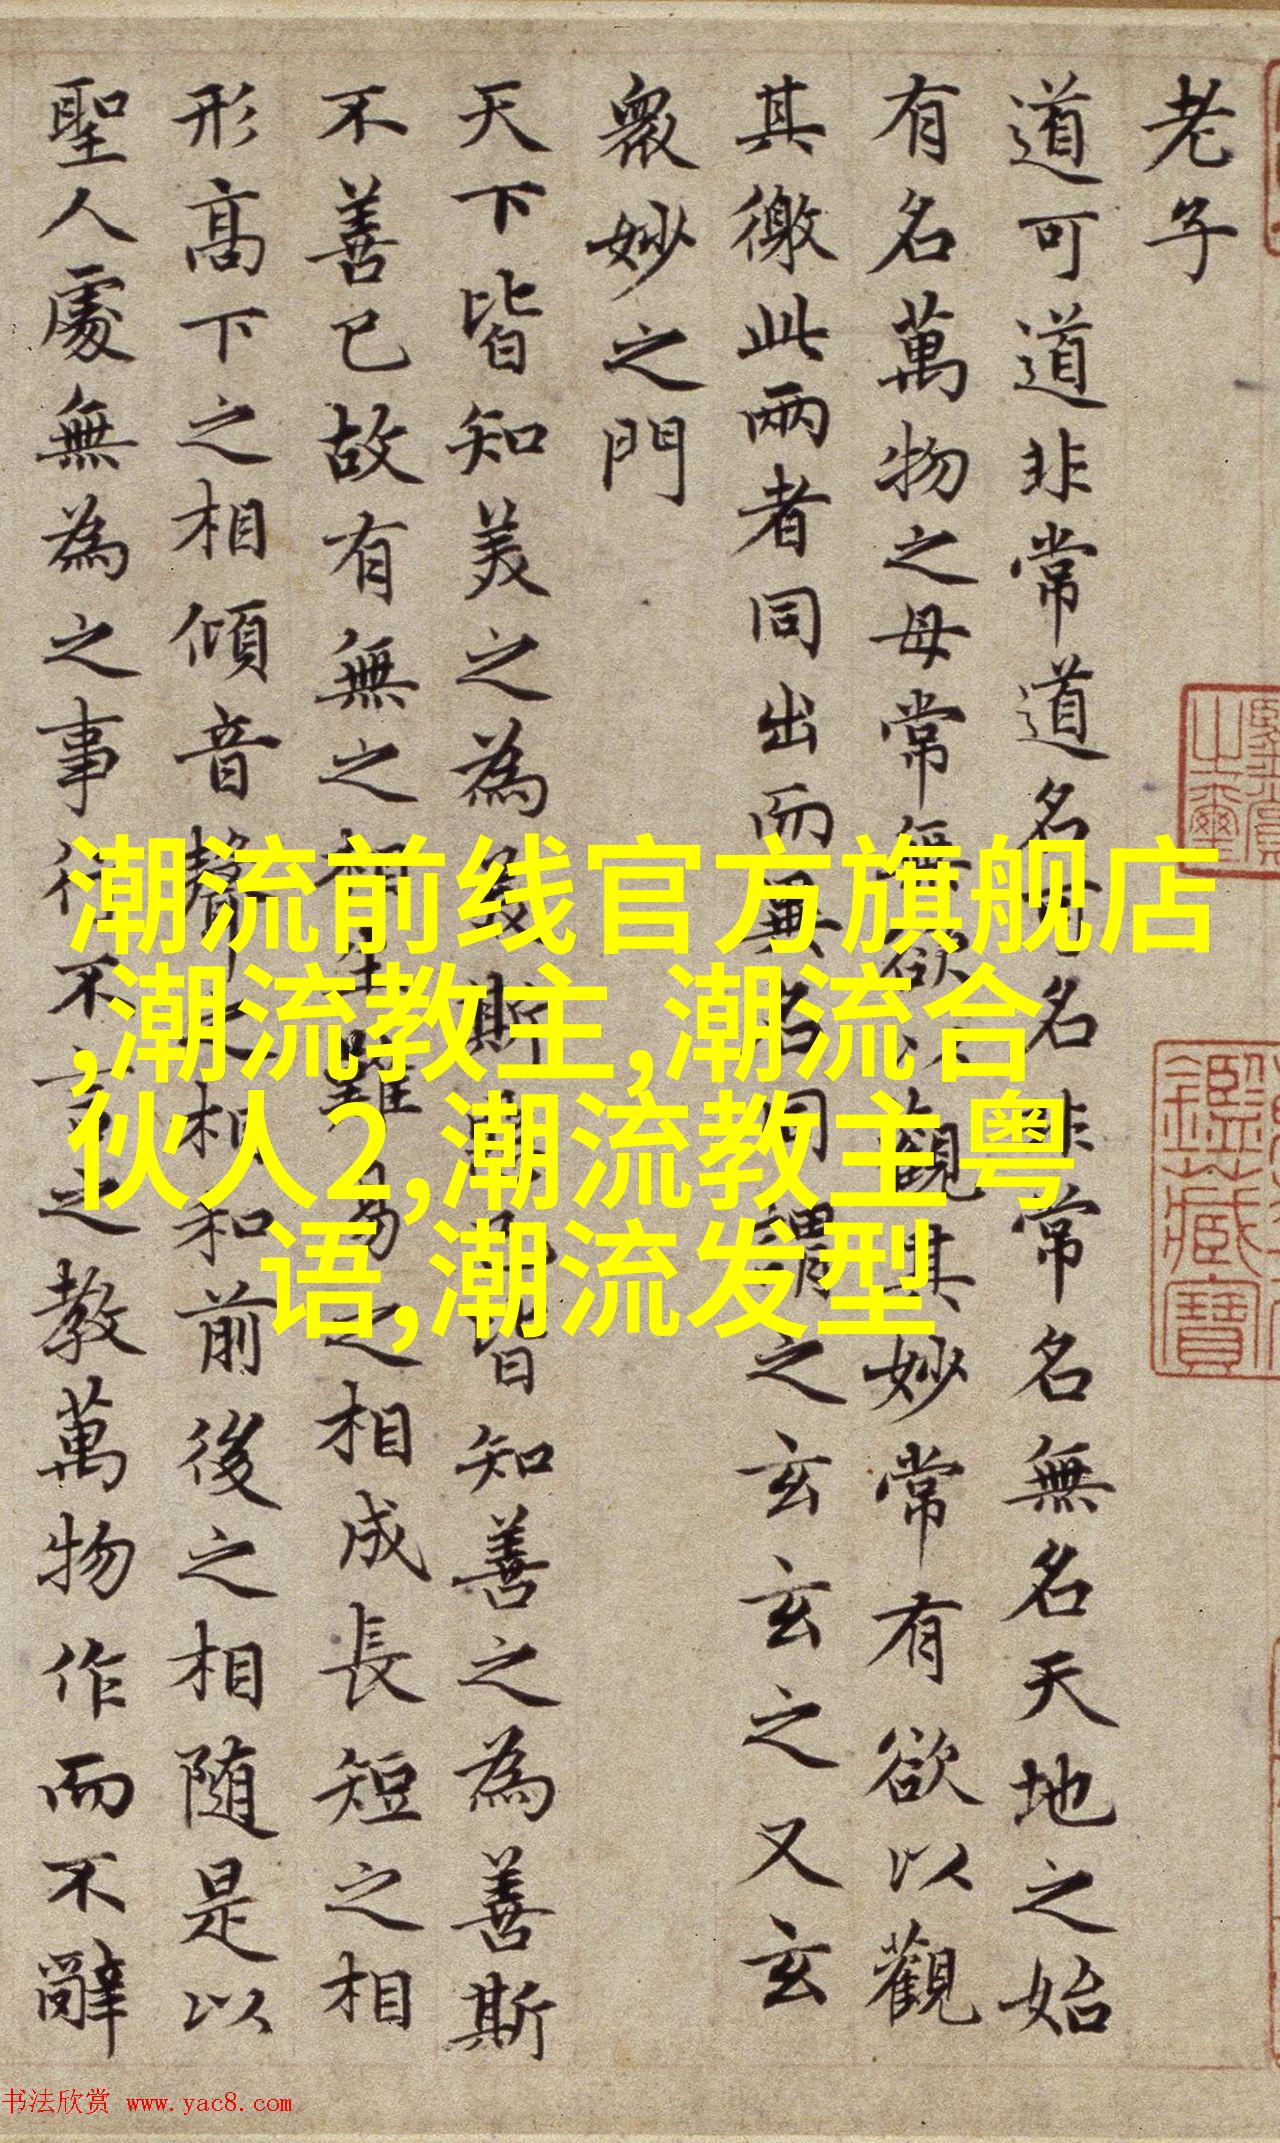 老子
道可道非常道名可名非常名無名天地之始
有名萬物之母常無欲以觀其妙常有欲以觀
其徼此兩者同出而異名同謂之玄玄之又玄
衆妙之門
天下皆知美之為美斯惡已皆知善之為善斯
不善已故有無之相生難易之相成長短之相
形高下之相傾音聲之相和前後之相随是以
聖人處無為之事行不言之教萬物作而不辭
潮流前线官方旗舰店
,潮流教主,潮流合
伙人2,潮流教主粤
语,潮流发型
鑑藏寶
书法欣赏 www.yac8.com